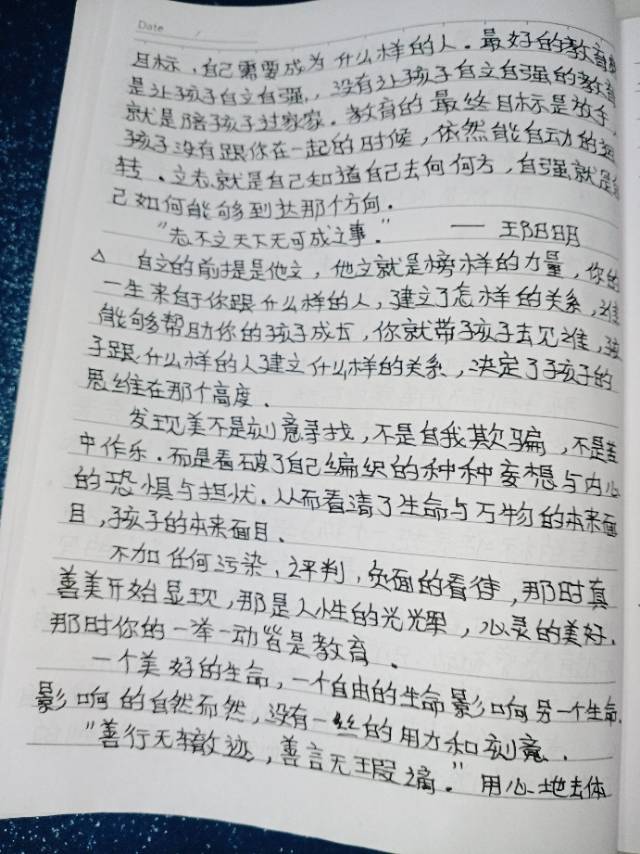 Date
目标，自己需要成为什么样的人。最好的教育
是让孩子自立自强，没有让孩子自立自强的教育
就是陪孩子过家家。教育的最终目标是放手，
孩子没有跟你在一起的时候，依然能自动的运
转。立志就是自己知道自己去向何方，自强就是
己如何能够到达那个方向。
"志不立天下无可成之事。" — 王阳明
△ 自立的前提是他立，他立就是榜样的力量，你的
一生来自于你跟什么样的人，建立了怎样的关系，谁
能够帮助你的孩子成长，你就带孩子去见谁，孩
子跟什么样的人建立什么样的关系，决定了孩子的
思维在那个高度。
发现美不是刻意寻找，不是自我欺骗，不是苦
中作乐。而是看破了自己编织的种种妄想与内心
的恐惧与担忧。从而看清了生命与万物的本来面
目，孩子的本来面目。
不加任何污染，评判，负面的看待，那时真
善美开始显现，那是人性的光辉，心灵的美好，
那时你的一举一动皆是教育。
一个美好的生命，一个自由的生命影响另一个生命，
影响的自然而然，没有一丝的用力和刻意。
"善行无辙迹，善言无瑕谪。" 用心地去体